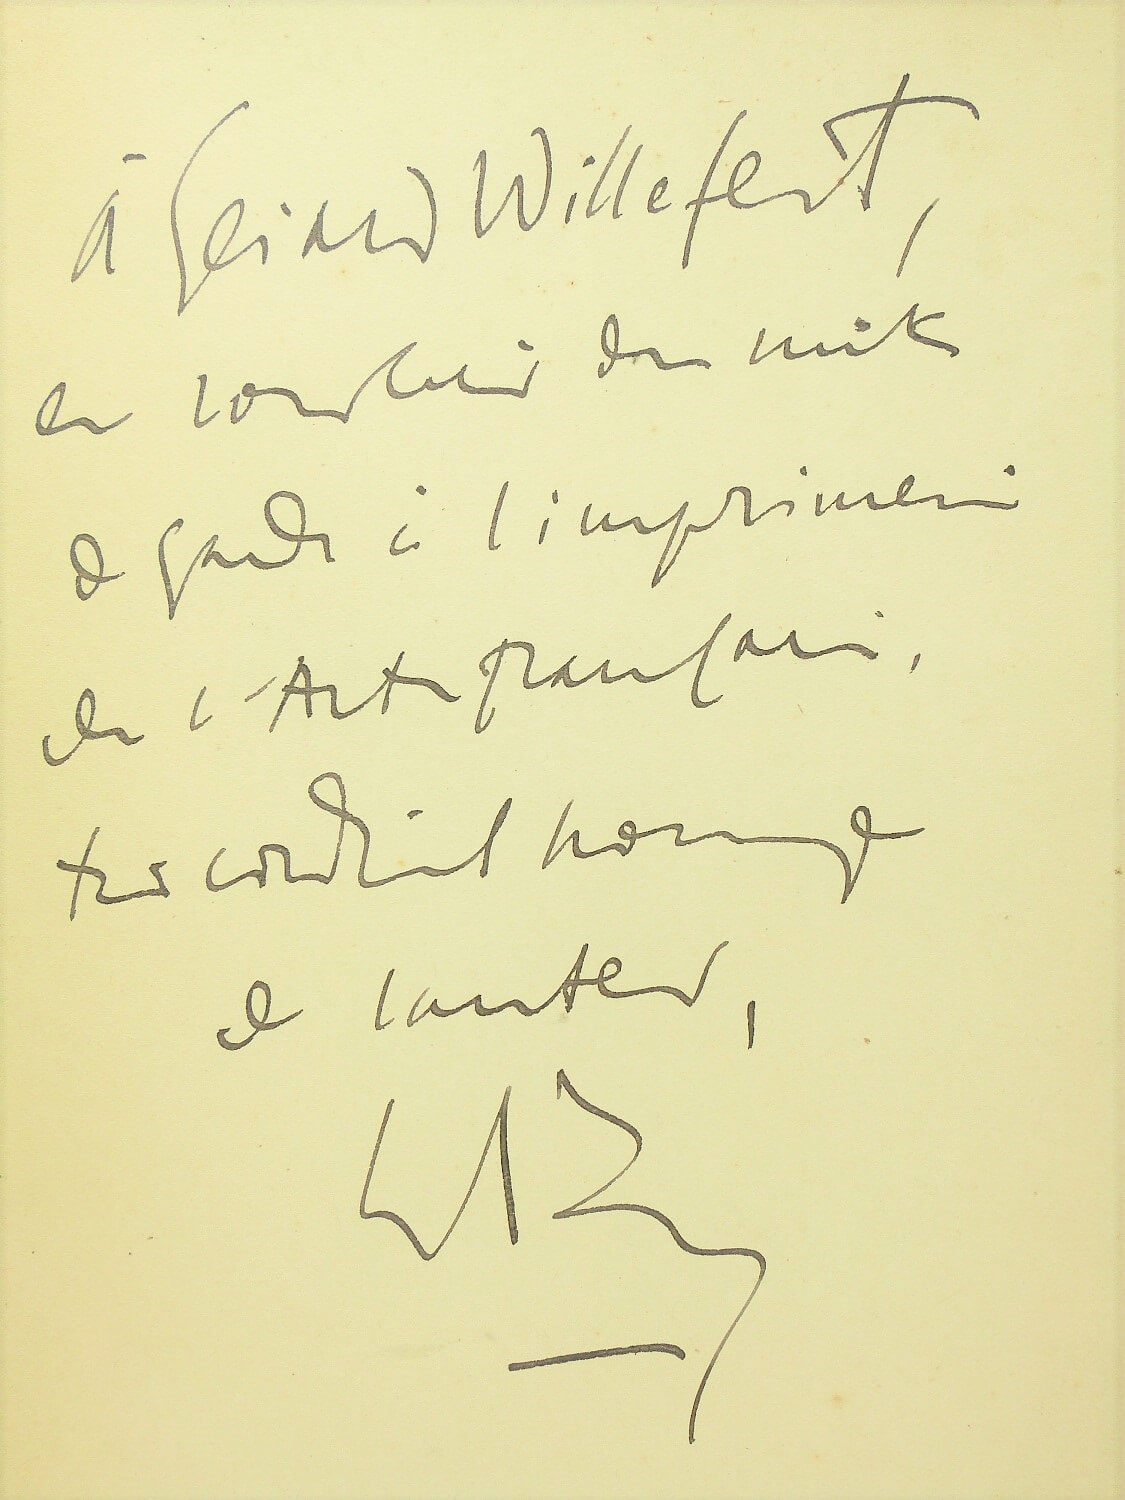 À Gérard Willefert,
en souvenir des nuits
de garde à l'imprimerie
de l'Action française,
très cordial hommage
de l'auteur,